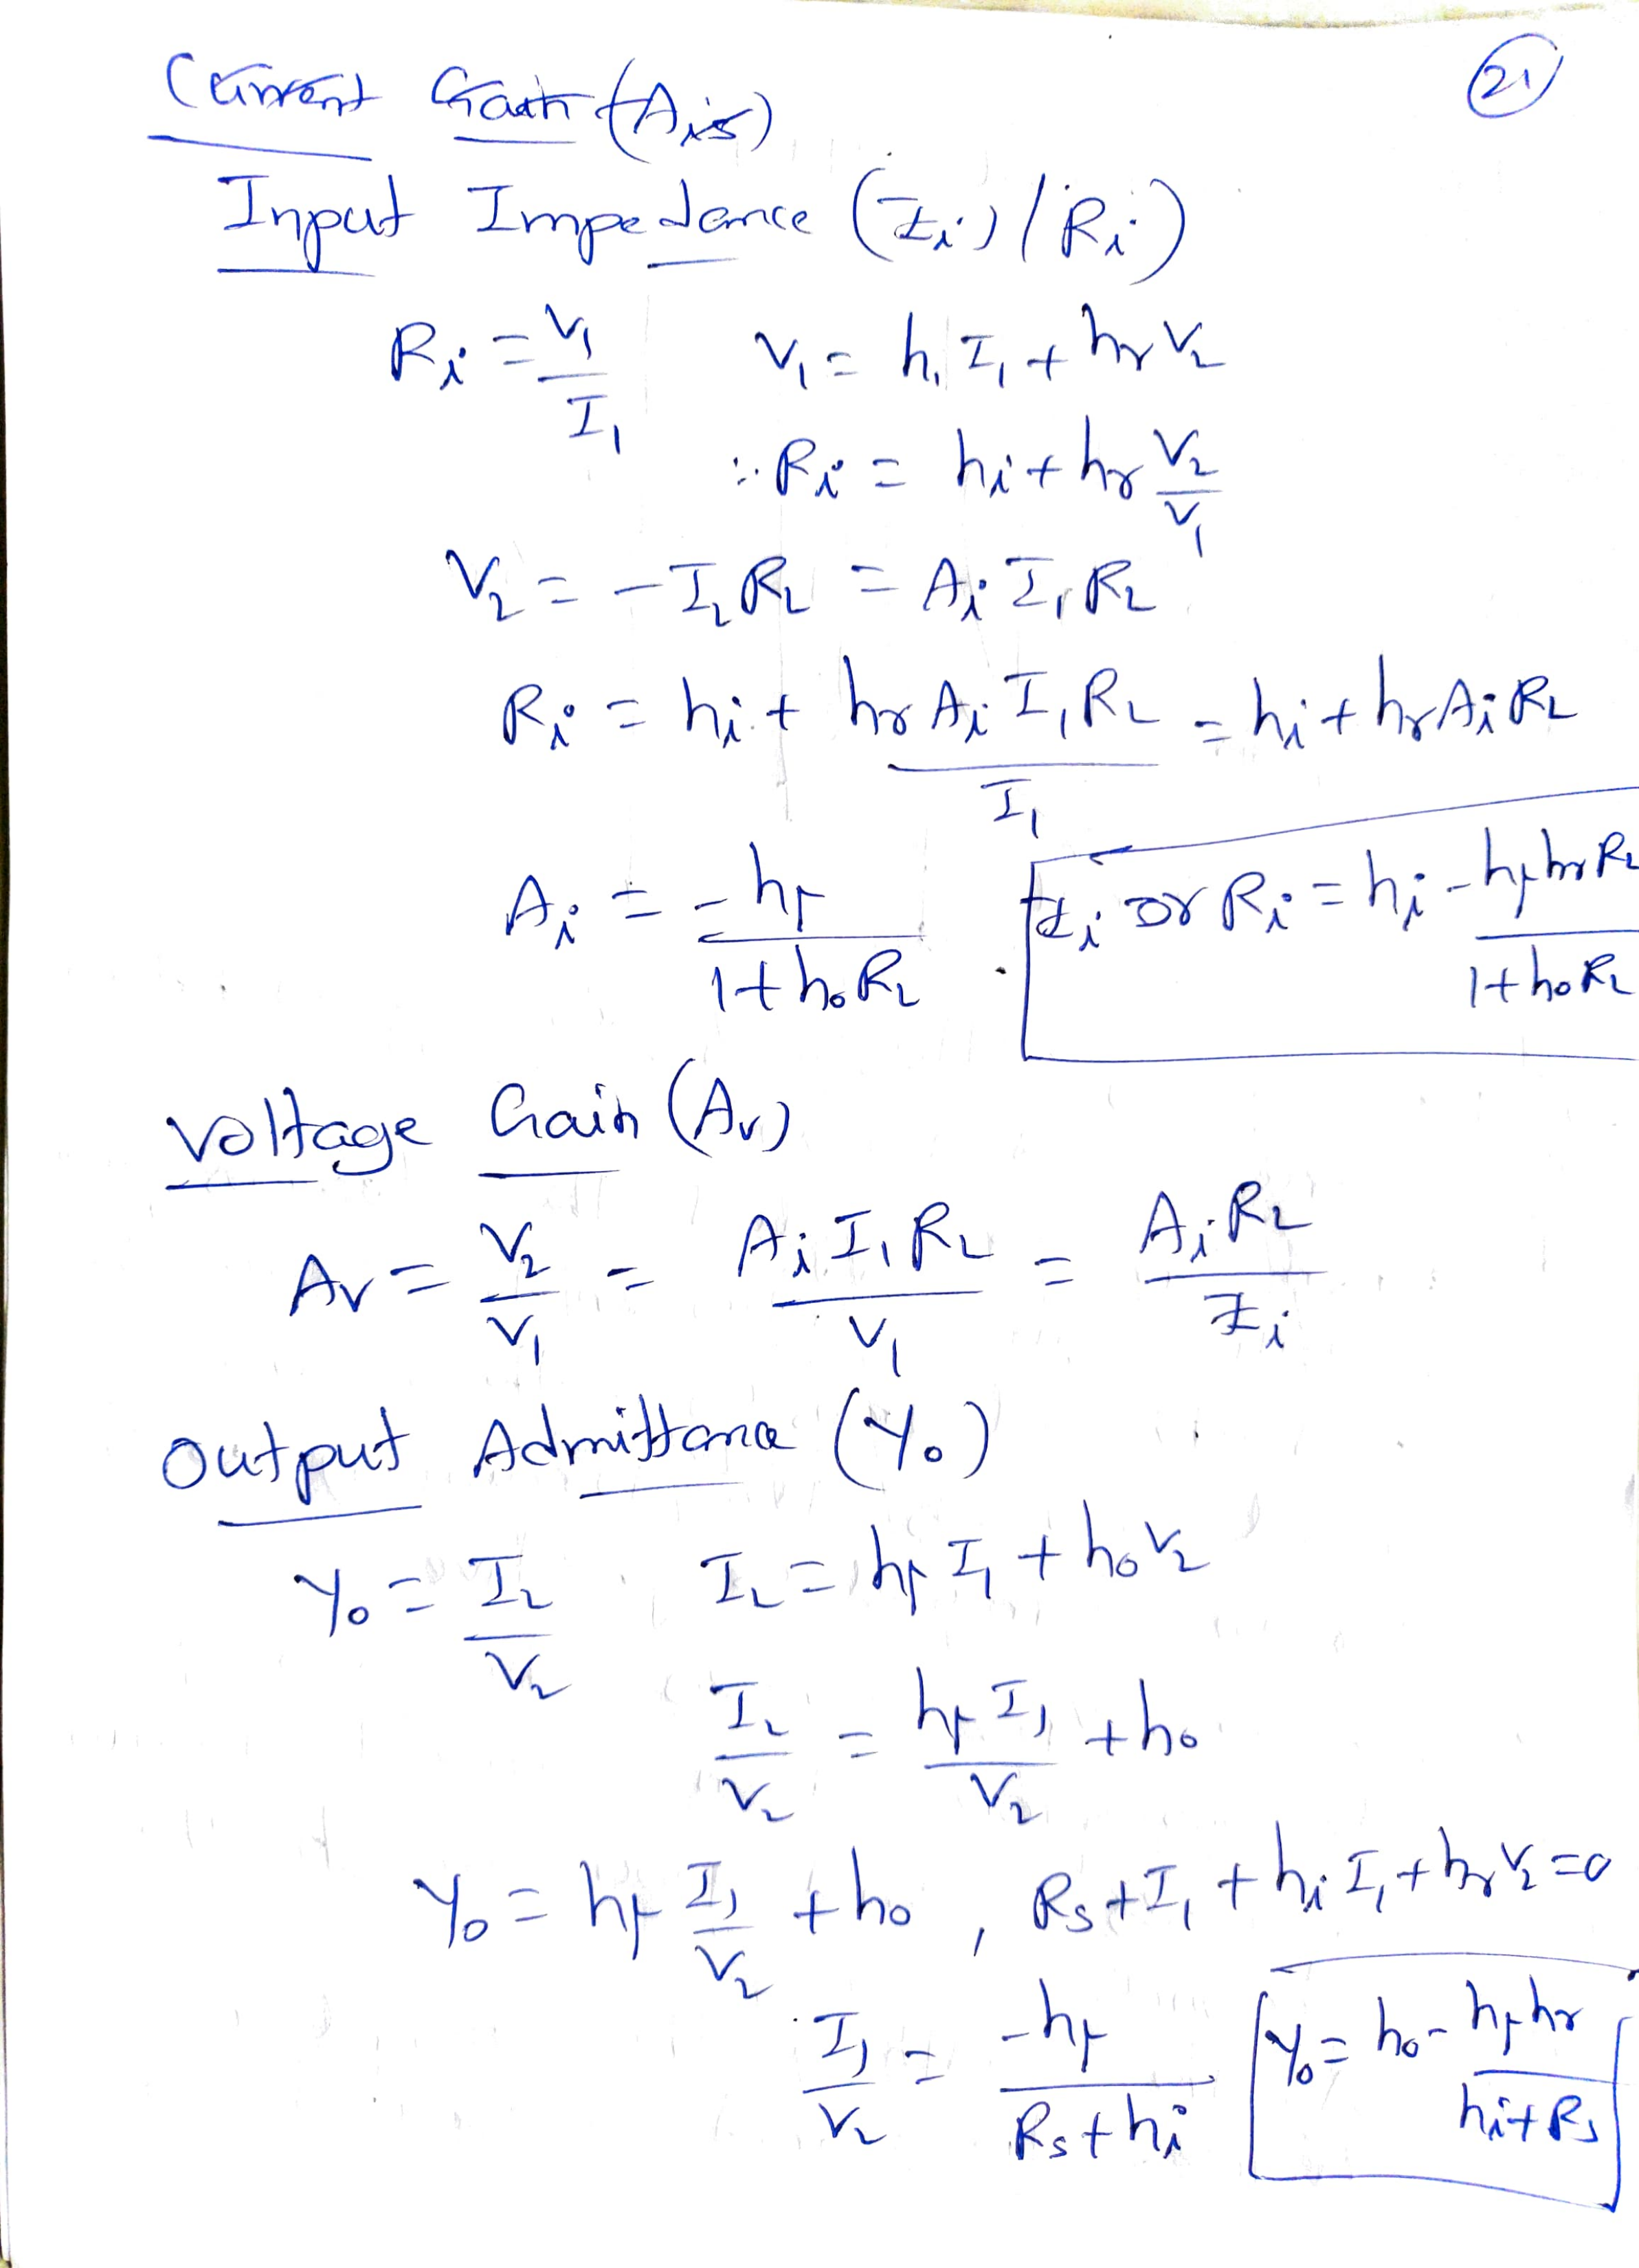 21
Current Gain (Ais)
Input Impedance (Zi) / Ri)
Ri = V1/I1    V1 = hi I1 + hr V2
∴ Ri = hi + hr V2/V1
V2 = -I2 RL = Ai I1 RL
Ri = hi + hr Ai I1 RL / I1 = hi + hr Ai RL
Ai = -hf / 1 + ho RL    Zi or Ri = hi - hf hr RL / 1 + ho RL
Voltage Gain (Av)
Av = V2/V1 = Ai I1 RL / V1 = Ai RL / Zi
Output Admittance (Yo)
Yo = I2/V2    I2 = hf I1 + ho V2
I2/V2 = hf I1/V2 + ho
Yo = hf I1/V2 + ho , Rs + I1 + hi I1 + hr V2 = 0
I1/V2 = -hf / Rs + hi    Yo = ho - hf hr / hi + Rs